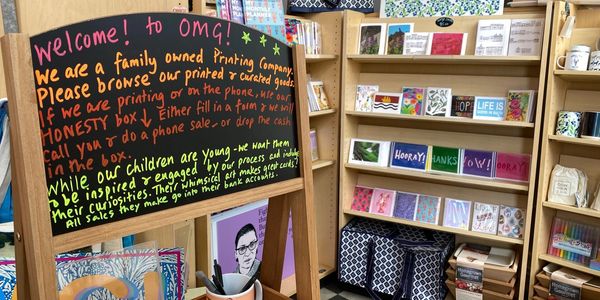 Welcome! to OMG!
We are a family owned Printing Company.
Please browse our printed & curated goods.
If we are printing or on the phone, use our
HONESTY BOX ↓ Either fill in a form & we will
call you & do a phone sale - or drop the cash
in the box.
While our children are young - we want them
to be inspired & engaged by our process and including
their curiosities. Their whimsical art makes great cards!
All sales they make go into their bank accounts.
HOPE
LIFE IS
HOORAY!
THANKS
WOW!
HOORAY!
OMG